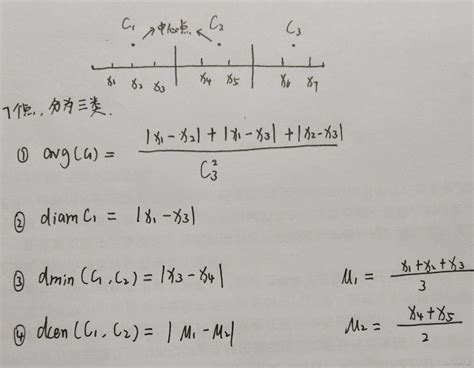 C₁ →中心点← C₂ C₃
x₁ x₂ x₃ x₄ x₅ x₆ x₇
7个点,分为三类.
① avg(C₁) = (|x₁-x₂| + |x₁-x₃| + |x₂-x₃|) / C₃²
② diam C₁ = |x₁-x₃|
③ dmin(C₁,C₂) = |x₃-x₄| μ₁ = (x₁+x₂+x₃) / 3
④ dcen(C₁,C₂) = |μ₁-μ₂| μ₂ = (x₄+x₅) / 2